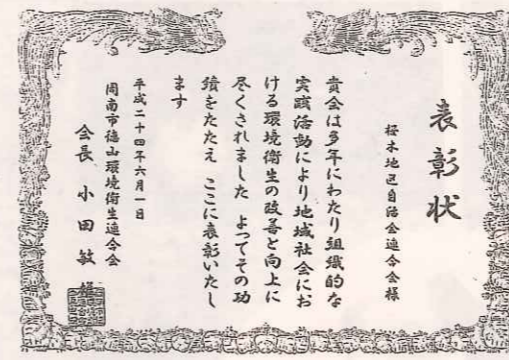 表彰状
桜木地区自治会連合会様
貴会は多年にわたり組織的な
実践活動により地域社会にお
ける環境衛生の改善と向上に
尽くされました よってその功
績をたたえ ここに表彰いたし
ます
平成二十四年六月一日
周南市徳山環境衛生連合会
会長 小田敏